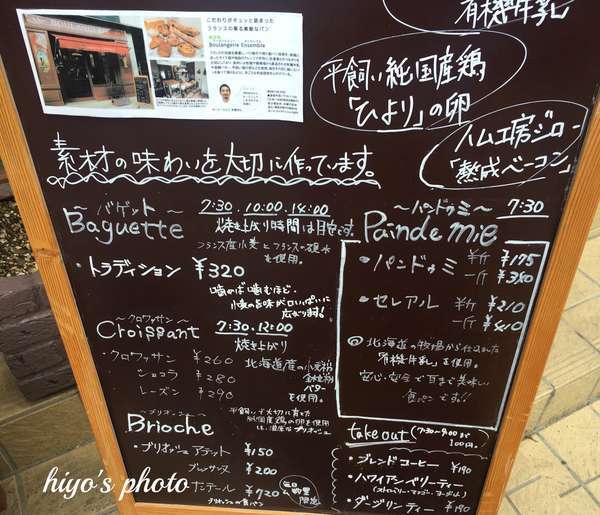 こだわりがギュッと詰まった
フランスの薫る素敵なパン
Boulangerie Ensemble
有機牛乳」
平飼い純国産鶏
「ひより」の卵
ハム工房ジロー
「熟成ベーコン」
素材の味わいを大切に作っています。
～バゲット～
Baguette
7:30、10:00、14:00
焼き上がり時間は目安です
フランス産小麦とフランスの硬水
を使用。
・トラディション ¥320
噛めば噛むほど、
小麦の旨味が口いっぱいに
広がります!
～クロワッサン～
Croissant
7:30、12:00
焼き上がり
・クロワッサン ¥260
ショコラ ¥280
レーズン ¥290
北海道産の小麦粉
バター
を使用。
～ブリオッシュ～
Brioche
平飼いで大切に育てた
純国産鶏の卵を使用
・ブリオッシュ アテット ¥150
¥200
ナンテール ¥720
ブリオッシュの食パン
毎日
数量
限定
～パンドゥミ～ 7:30
Pain de mie
・パンドゥミ 半斤 ¥175
一斤 ¥350
・セレアル 半斤 ¥210
一斤 ¥410
◎北海道の牧場から仕入れた
「有機牛乳」を使用。
安心・安全で耳まで美味しい
食パンです!!
take out (7:30～9:00まで
100円)
・ブレンドコーヒー ¥190
・ハワイアンベリーティー
・ダージリンティー ¥190
hiyo's photo